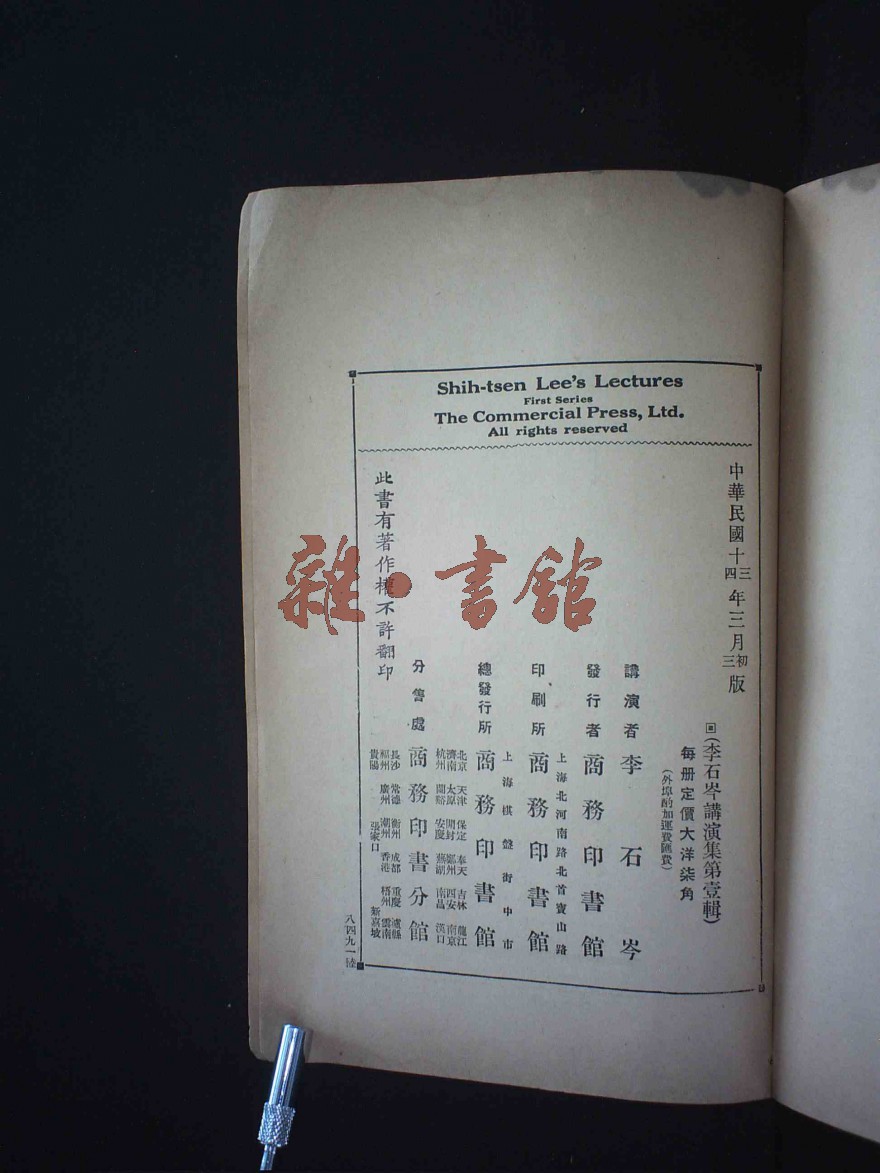 Shih-tsen Lee's Lectures
First Series
The Commercial Press, Ltd.
All rights reserved
中華民國十三四年三月初三版
(李石岑講演集第壹輯)
每册定價大洋柒角
(外埠酌加運費匯費)
講演者 李石岑
發行者 商務印書館
上海北河南路北首寶山路
印刷所 商務印書館
上海棋盤街中市
總發行所 商務印書館
北京 天津 保定 奉天 吉林 龍江
濟南 太原 開封 鄭州 西安 南京
杭州 蘭谿 安慶 蕪湖 南昌 漢口
分售處 商務印書分館
長沙 常德 衡州 成都 重慶 瀘縣
福州 廣州 潮州 香港 梧州 雲南
貴陽 張家口 新嘉坡
此書有著作權不許翻印
八四九一陸
雜·書館